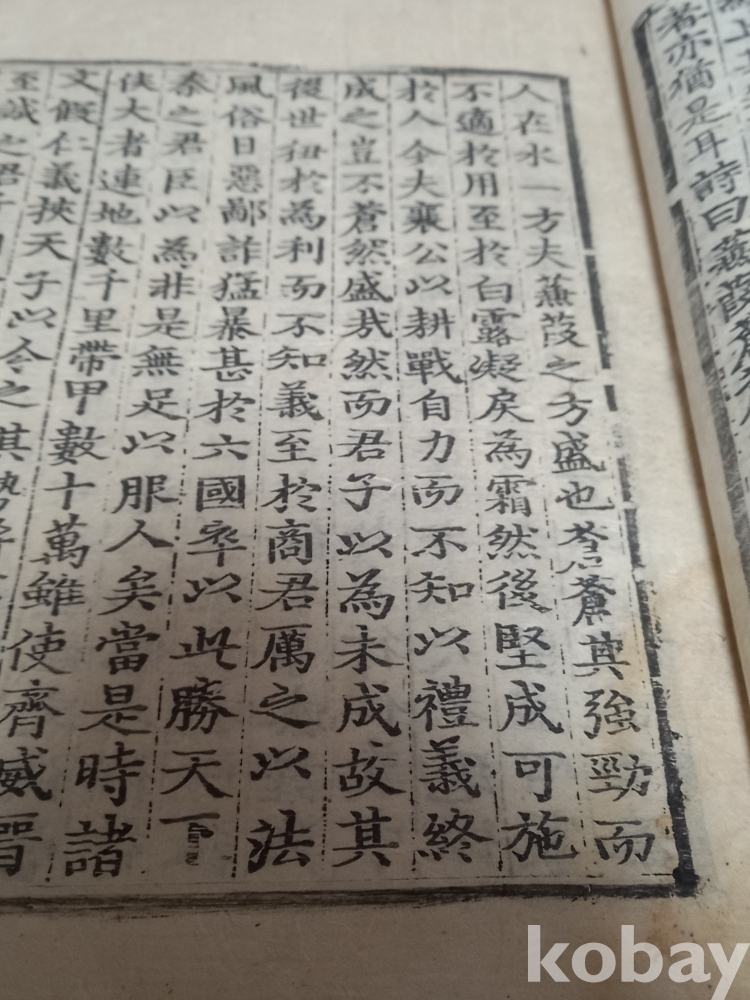 者亦猶是耳詩曰蒹葭蒼
人在水一方夫蒹葭之方盛也蒼蒼其強勁而
不適於用至於白露凝戾為霜然後堅成可施
於人今夫襄公以耕戰自力而不知以禮義終
成之豈不蒼然盛哉然而君子以為未成故其
後世狃於為利而不知義至於商君厲之以法
風俗日惡鄙詐猛暴甚於六國卒以此勝天下
秦之君臣以為非是無足以服人矣當是時諸
侯大者連地數千里帶甲數十萬雖使齊威晉
文假仁義挾天子以令之其勢
至誠之君子
kobay